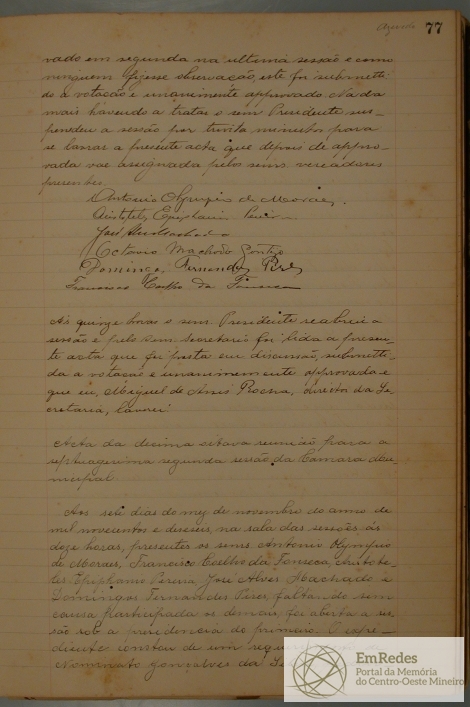 Azevedo 77
vado em segunda na ultima sessão e como
ninguem fizesse observação, este foi submetti-
do a votação e unanimente approvado. Nada
mais havendo a tratar o snr Presidente sus-
pendeu a sessão por trinta minutos para
se lavrar a presente acta que depois de appro-
vada vae assignada pelos snrs. vereadores
presentes.
Antonio Olympio de Moraes.
José Alves Machado
Octavio Machado Gontijo
Domingos Fernandes Pires
Francisco Coelho da Fonseca
Ás quinze horas o snr Presidente reabriu a
sessão e pelo snr. Secretario foi lida a presen-
te acta que foi posta em discussão, submetti-
da a votação e unanimemente approvada e
que eu, Miguel de Assis Rocha, director da Se-
cretaria, lavrei.
Acta da decima oitava reunião para a
septuagesima segunda sessão da Camara Mu-
nicipal
Aos sete dias do mez de novembro do anno de
mil novecentos e deseseis, na sala das sessões, ás
doze horas, presentes os snrs. Antonio Olympio
de Moraes, Francisco Coelho da Fonseca, Aristote-
les Epiphanio Pereira, José Alves Machado e
Domingos Fernandes Pires, faltando sem
causa participada os demais, foi aberta a ses-
são sob a presidencia do primeiro. O expe-
diente constou de um
Gonçalves da
EmRedes
Portal da Memória
do Centro-Oeste Mineiro